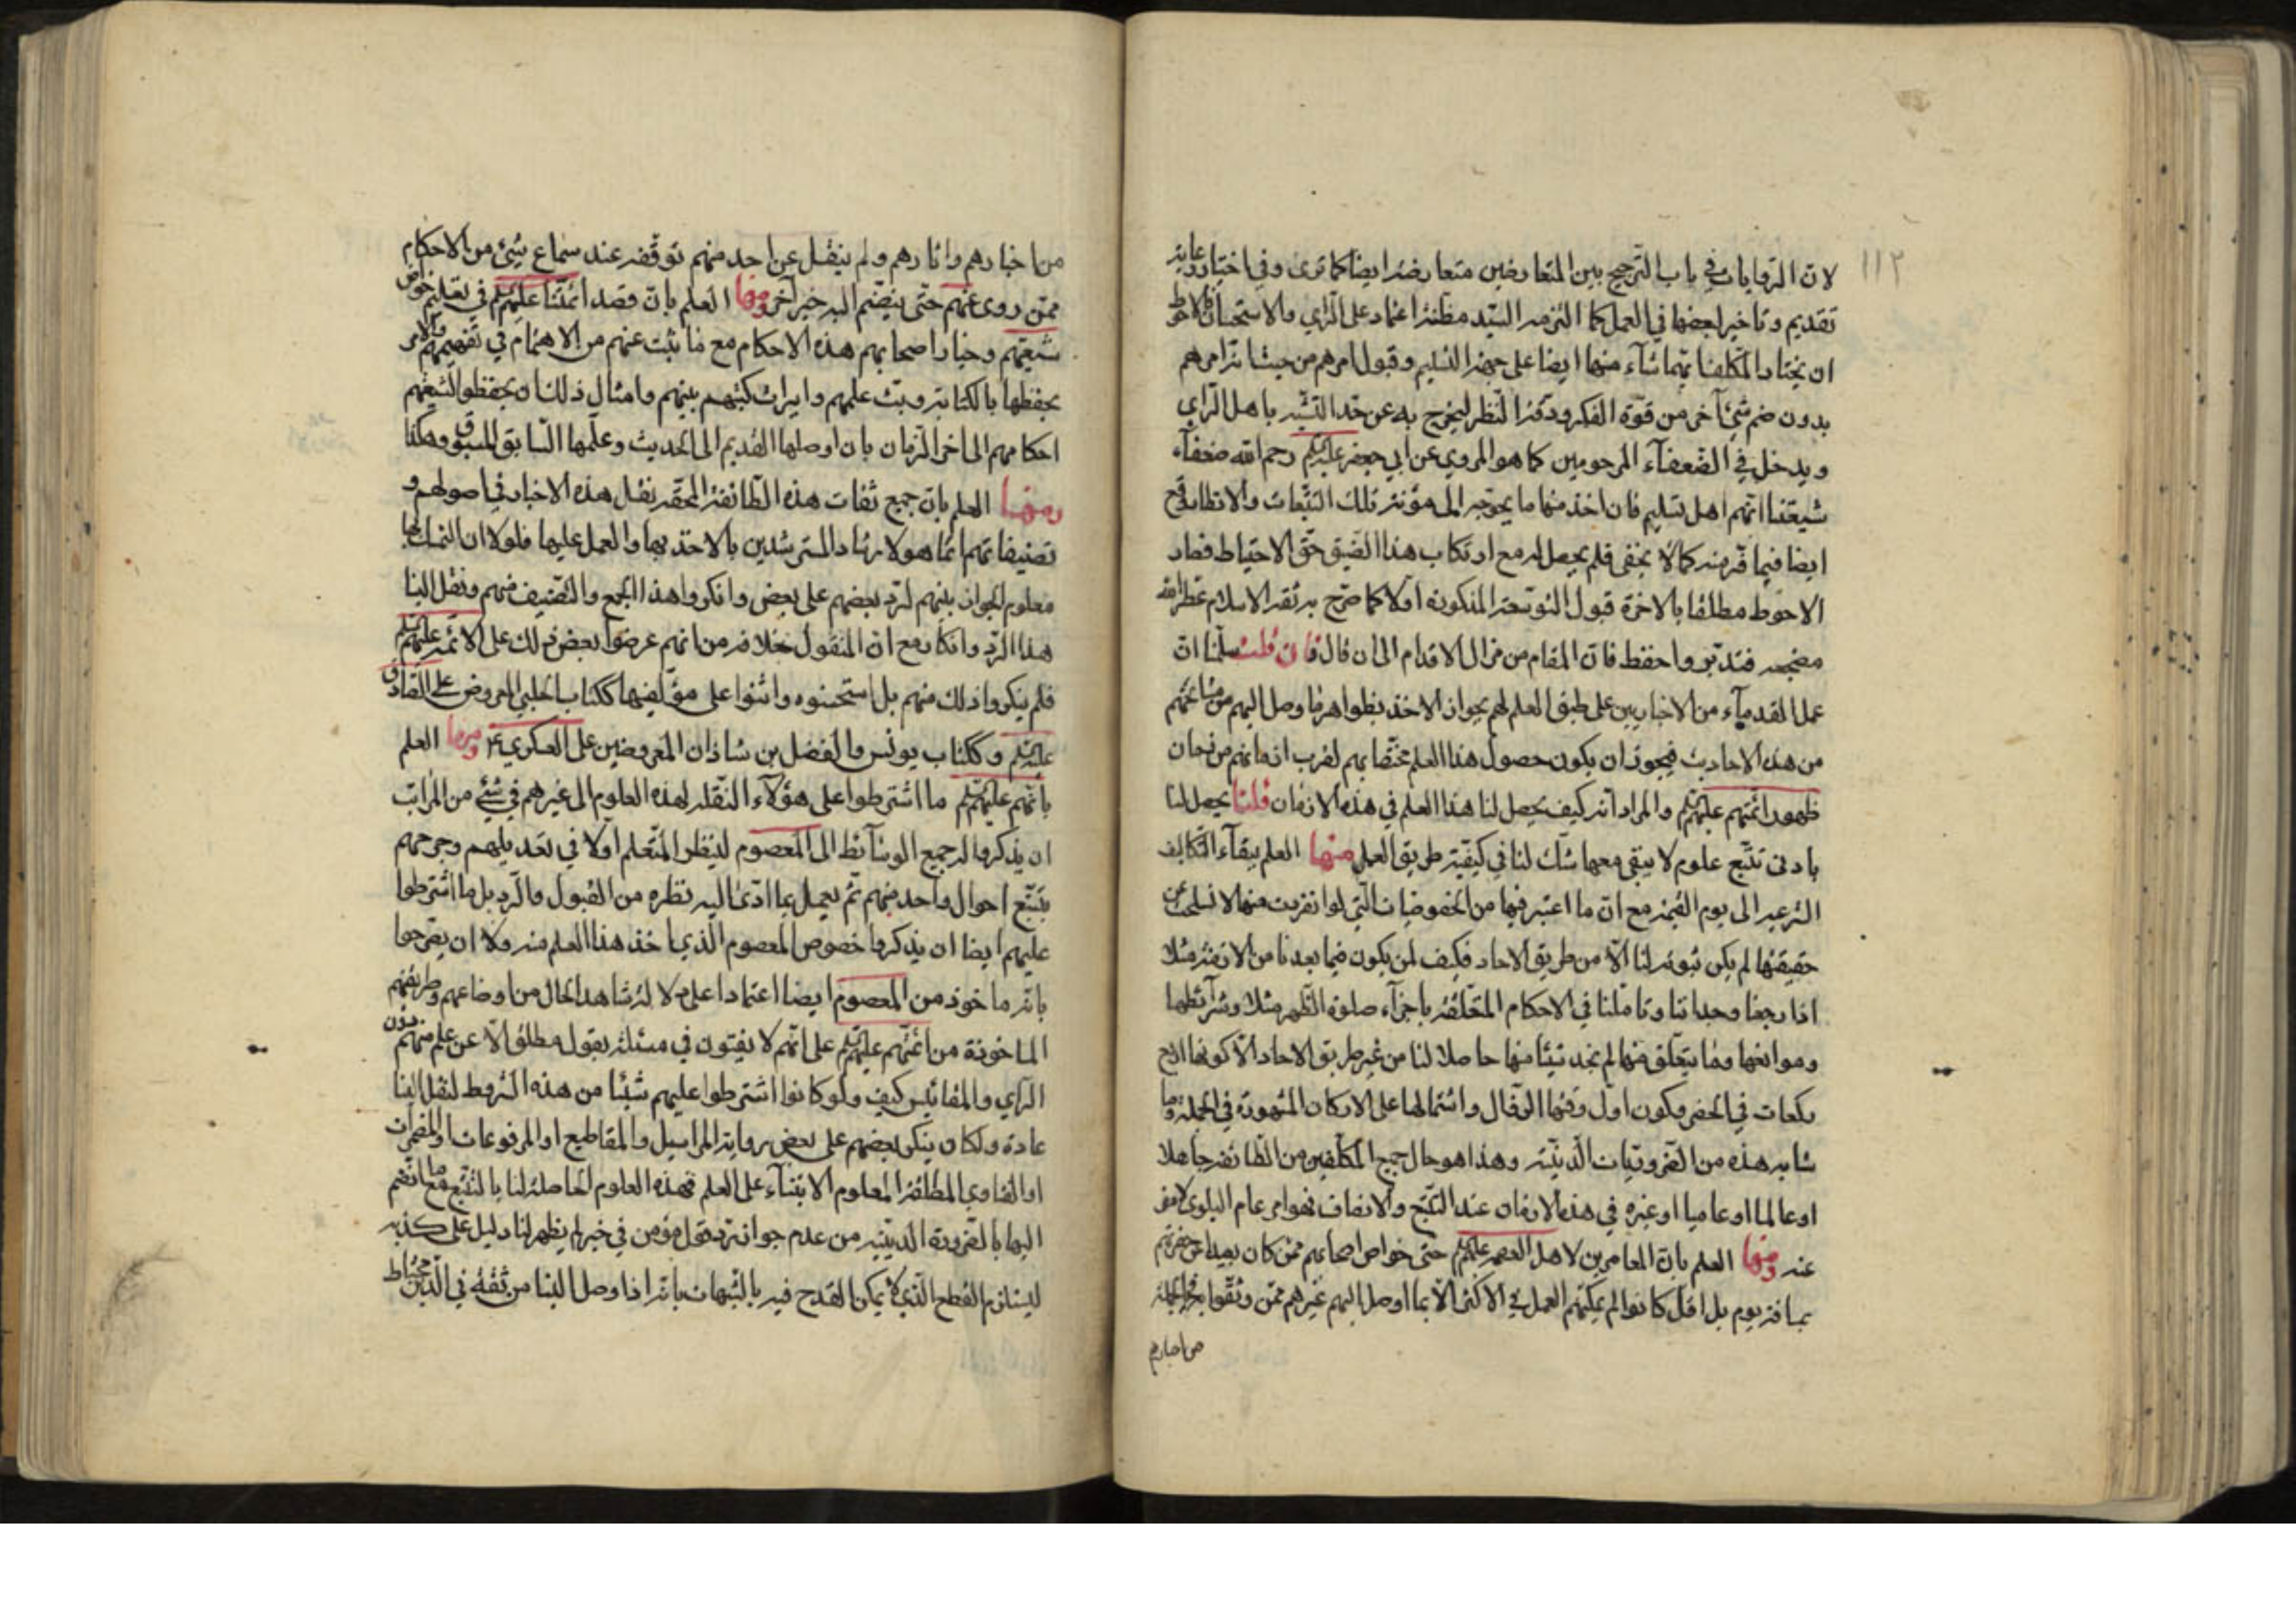 ١١٢
لان الروايات في باب الترجيح بين المتعارضين متعارضة ايضا كما ترى وفي اختيار رعاية
تقديم وتاخير لبعضها في العمل كما التزمه السيد مظنة اعتماد على الراي والاستحسان فالاحوط
ان يختار المكلف ايهما شاء منهما ايضا على جهة التسليم وقبول امرهم من حيث انه امرهم
بدون ضم شئ آخر من قوة الفكر ودقة النظر ليخرج به عن حد التشبه باهل الراي
ويدخل في الضعفآء المرحومين كما هو المروي عن ابي جعفر عليه السلم رحم الله ضعفآء
شيعتنا انهم اهل تسليم فان اخذ منهما ما يحوجه الى مؤنة تلك التتبعات والانظار وقع
ايضا فيما فر منه كما لا يخفى فلم يحصل له مع ارتكاب هذا الضيق حق الاحتياط فصار
الاحوط مطلقا بالاخرة قبول التوسعة المذكورة اولا كما صرح به ثقة الاسلام عطر الله
مضجعه فتدبر واحفظ فان المقام من مزال الاقدام الى ان قال فان قلت سلمنا ان
عمل القدمآء من الاخباريين على طبق العلم لهم بجواز الاخذ بظواهر ما وصل اليهم من مشائخهم
من هذه الاحاديث فيجوز ان يكون حصول هذا العلم مختصا بهم لقرب ازمانهم من زمان
ظهور ائمتهم عليهم السلم والمراد انه كيف يحصل لنا هذا العلم في هذه الازمان قلنا يحصل لنا
بادنى تتبع علوم لا يبقى معها شك لنا في كيفية طريق العمل منها العلم ببقآء التكاليف
الشرعية الى يوم القيمة مع ان ما اعتبر فيها من الخصوصيات التي لو انفردت منها لانسلخت عن
حقيقتها لم يكن ثبوته لنا الا من طريق الاحاد فكيف لمن يكون فيما بعدنا من الازمنة مثلا
اذا رجعنا وجداننا وتاملنا في الاحكام المتعلقة باجزآء صلوة الظهر مثلا وشرآئطها
وموانعها وما يتعلق منها لم نجد شيئا منها حاصلا لنا من غير طريق الاحاد الا كونها اربع
ركعات في الحضر وكون اول وقتها الزوال واشتمالها على الاركان المشهورة في الجملة وما
شابه هذه من الضروريات الدينية وهذا هو حال جميع المكلفين من الطائفة جاهلا
او عالما او عاميا او غيره في هذه الازمان عند التتبع والانصاف فهو امر عام البلوى لا مفر
عنه ومنها العلم بان المعاصرين لاهل العصمة عليهم السلم حتى خواص اصحابهم ممن كان بعيدا عن حضرتهم
بمسافة يوم بل اقل كانوا لم يمكنهم العمل في الاكثر الا بما اوصل اليهم غيرهم ممن وثقوا به في الجملة
من اخبارهم
من اخبارهم واثارهم ولم ينقل عن احد منهم توقفه عند سماع شئ من الاحكام
ممن روى عنهم حتى ينضم اليه خبر آخر ومنها العلم بان قصد ائمتنا عليهم السلم في تعليم خواص
شيعتهم وخيار اصحابهم هذه الاحكام مع ما ثبت عنهم من الاهتمام في تفهيمهم والامر
بحفظها بالكتابة وبث علمهم وايراث كتبهم بينهم وامثال ذلك ان يحفظوا لشيعتهم
احكامهم الى اخر الزمان بان اوصلها القديم الى الحديث وعلمها السابق للمسبوق وهكذا
ومنها العلم بان جميع ثقات هذه الطائفة المحقة نقل هذه الاخبار في اصولهم و
تصنيفاتهم انما هو لارشاد المسترشدين بالاخذ بها والعمل عليها فلولا ان التمسك بها
معلوم الجواز بينهم لرد بعضهم على بعض وانكروا هذا الجمع والتصنيف منهم ونقل الينا
هذا الرد والانكار مع ان المنقول خلافه من انهم عرضوا بعض ذلك على الائمة عليهم السلم
فلم ينكروا ذلك منهم بل استحسنوه واثنوا على مؤلفيها ككتاب الحلبي المعروض على الصادق
عليه السلم وككتاب يونس والفضل بن شاذان المعروضين على العسكري ع ومنها العلم
بانهم عليهم السلم ما اشترطوا على هؤلآء النقلة لهذه العلوم الى غيرهم في شئ من المراتب
ان يذكروا له جميع الوسآئط الى المعصوم لينظر المتعلم اولا في تعديلهم وجرحهم
بتتبع احوال واحد منهم ثم يعمل بما ادى اليه نظره من القبول والرد بل ما اشترطوا
عليهم ايضا ان يذكروا خصوص المعصوم الذي اخذ هذا العلم منه ولا ان يصرحوا
بانه ماخوذ من المعصوم ايضا اعتمادا على دلالة شاهد الحال من اوضاعهم وطريقتهم
الماخوذة من ائمتهم عليهم السلم على انهم لا يفتون في مسئلة بقول مطلق الا عن علم منهم دون
الراي والمقائيس كيف ولو كانوا اشترطوا عليهم شيئا من هذه الشروط لنقل الينا
عادة ولكان ينكر بعضهم على بعض رواية المراسيل والمقاطيع او المرفوعات او المضمرات
او الفتاوى المطلقة المعلوم الابتنآء على العلم فهذه العلوم الحاصلة لنا بالتتبع مع ما انضم
اليها بالضرورة الدينية من عدم جواز رد قول مؤمن في خبر لم يظهر لنا دليل على كذبه
ليستلزم القطع الذي لا يمكن القدح فيه بالشبهات بانه اذا وصل الينا من ثقة في الدين محتاط